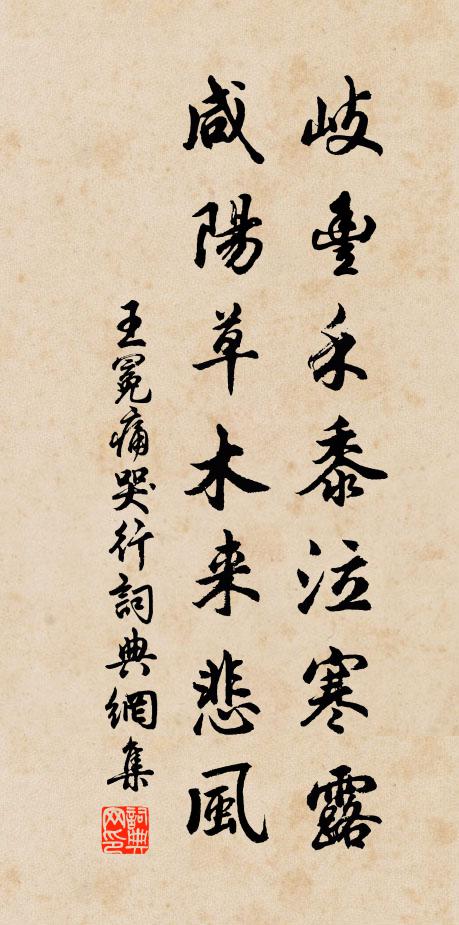 岐豊禾黍泣寒露
咸陽草木来悲風
王冕痛哭行詞典網集
詞典网印